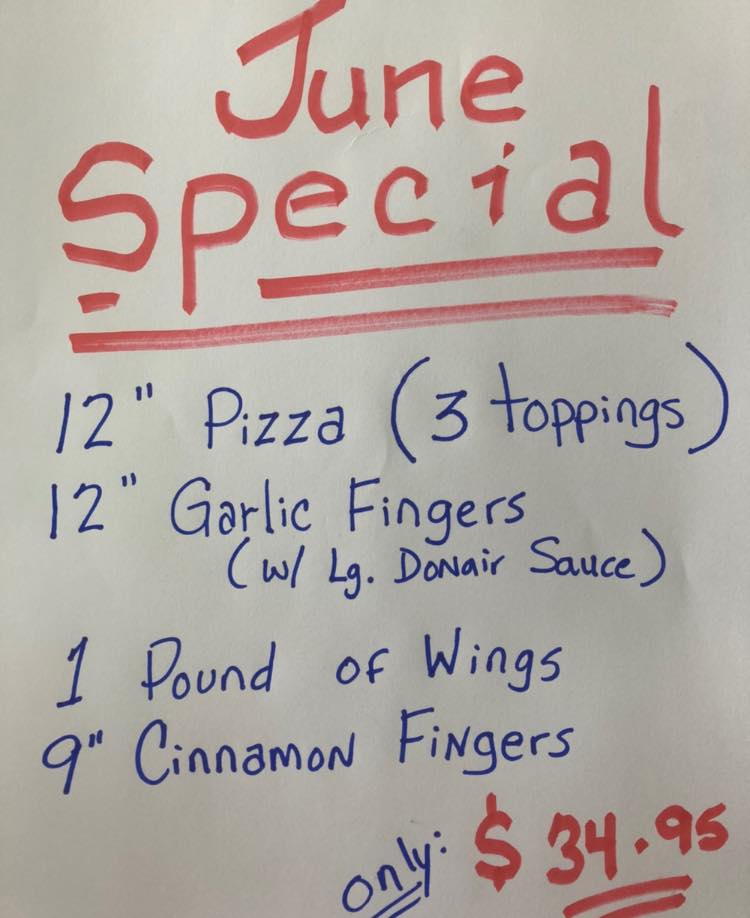 June
Special
12" Pizza (3 toppings)
12" Garlic Fingers
(w/ Lg. Donair Sauce)
1 Pound of Wings
9" Cinnamon Fingers
only: $34.95